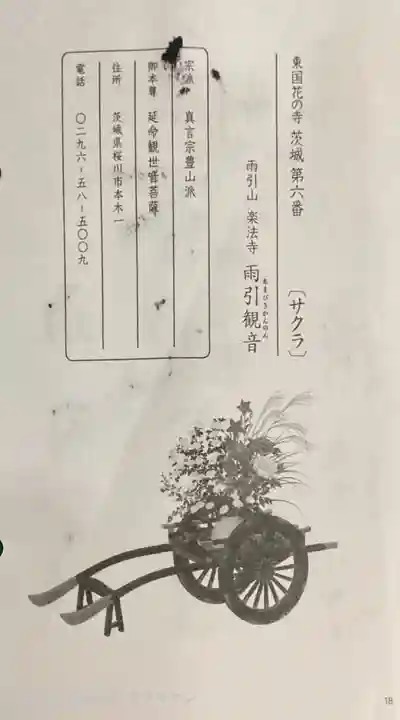 東国花の寺 茨城 第六番 〔サクラ〕
雨引山 楽法寺 雨引観音
あまびきかんのん
宗派 真言宗豊山派
御本尊 延命観世音菩薩
住所 茨城県桜川市本木一
電話 〇二九六-五八-五〇〇九
18